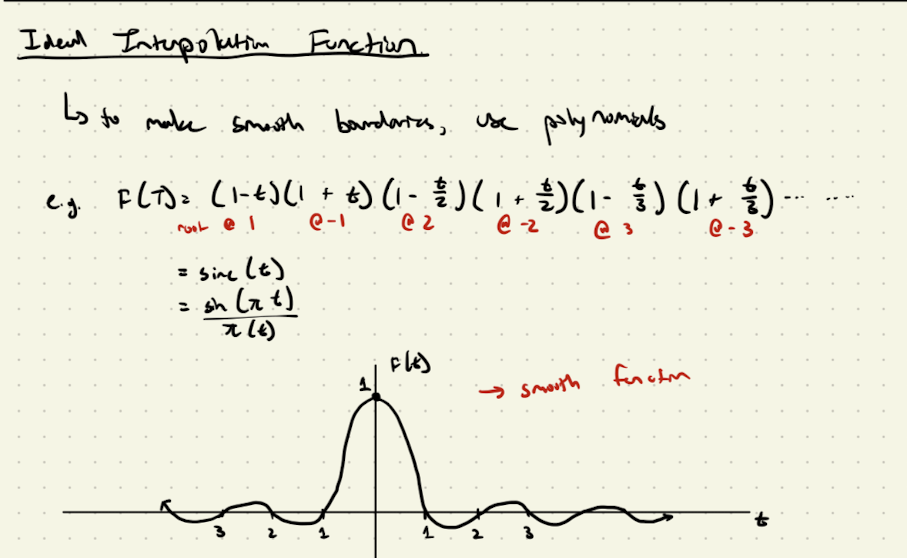 Ideal Interpolation Function
↳ to make smooth boundaries, use polynomials
e.g. F(T) = (1-t)(1 + t)(1 - t/2)(1 + t/2)(1 - t/3)(1 + t/3) ... ...
root @ 1 @-1 @ 2 @ -2 @ 3 @ -3
= sinc (t)
= sin (π t) / π (t)
F(t)
1 → smooth function
3 2 1 1 2 3 t